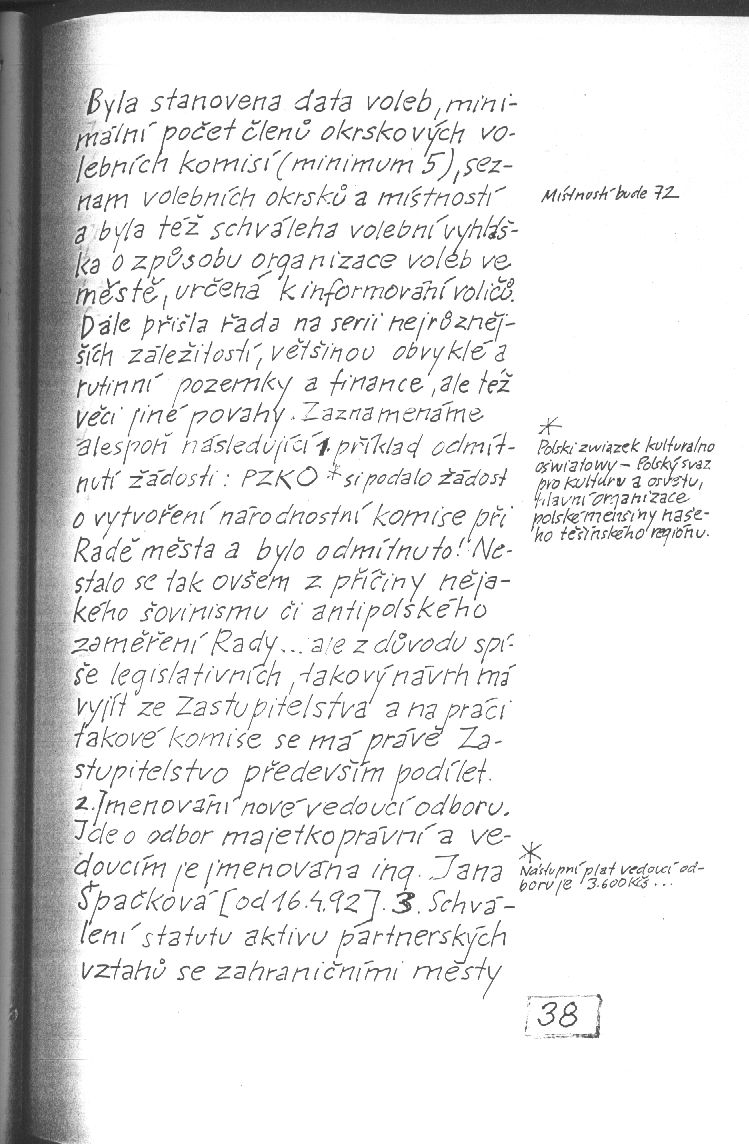 Byla stanovena data voleb, mini-
mální počet členů okrskových vo-
lebních komisí (minimum 5), sez-
nam volebních okrsků a místností
a byla též schválena volební vyhláš-
ka o způsobu organizace voleb ve
městě, určená k informování voličů.
Dále přišla řada na serii nejrůzněj-
ších záležitostí, většinou obvyklé a
rutinní pozemky a finance, ale též
věci jiné povahy. Zaznamenáme
alespoň následující 1. příklad odmít-
nutí žádosti: PZKO * si podalo žádost
o vytvoření národnostní komise při
Radě města a bylo odmítnuto! Ne-
stalo se tak ovšem z příčiny něja-
kého šovinismu či antipolského
zaměření Rady... ale z důvodu spí-
še legislativních, takový návrh má
vyjít ze Zastupitelstva a na práci
takové komise se má právě Za-
stupitelstvo především podílet.
2. Jmenování nové vedoucí odboru.
Jde o odbor majetkoprávní a ve-
doucím je jmenována ing. Jana
Špačková [od 16.4.92]. 3. Schvá-
lení statutu aktivu partnerských
vztahů se zahraničními městy
Místností bude 72
*
Polski związek kulturalno
oświatowy – Polský svaz
pro kulturu a osvětu,
hlavní organizace
polské menšiny naše-
ho těšínského regionu.
*
Nástupní plat vedoucí od-
boru je 3.600 Kčs ...
38